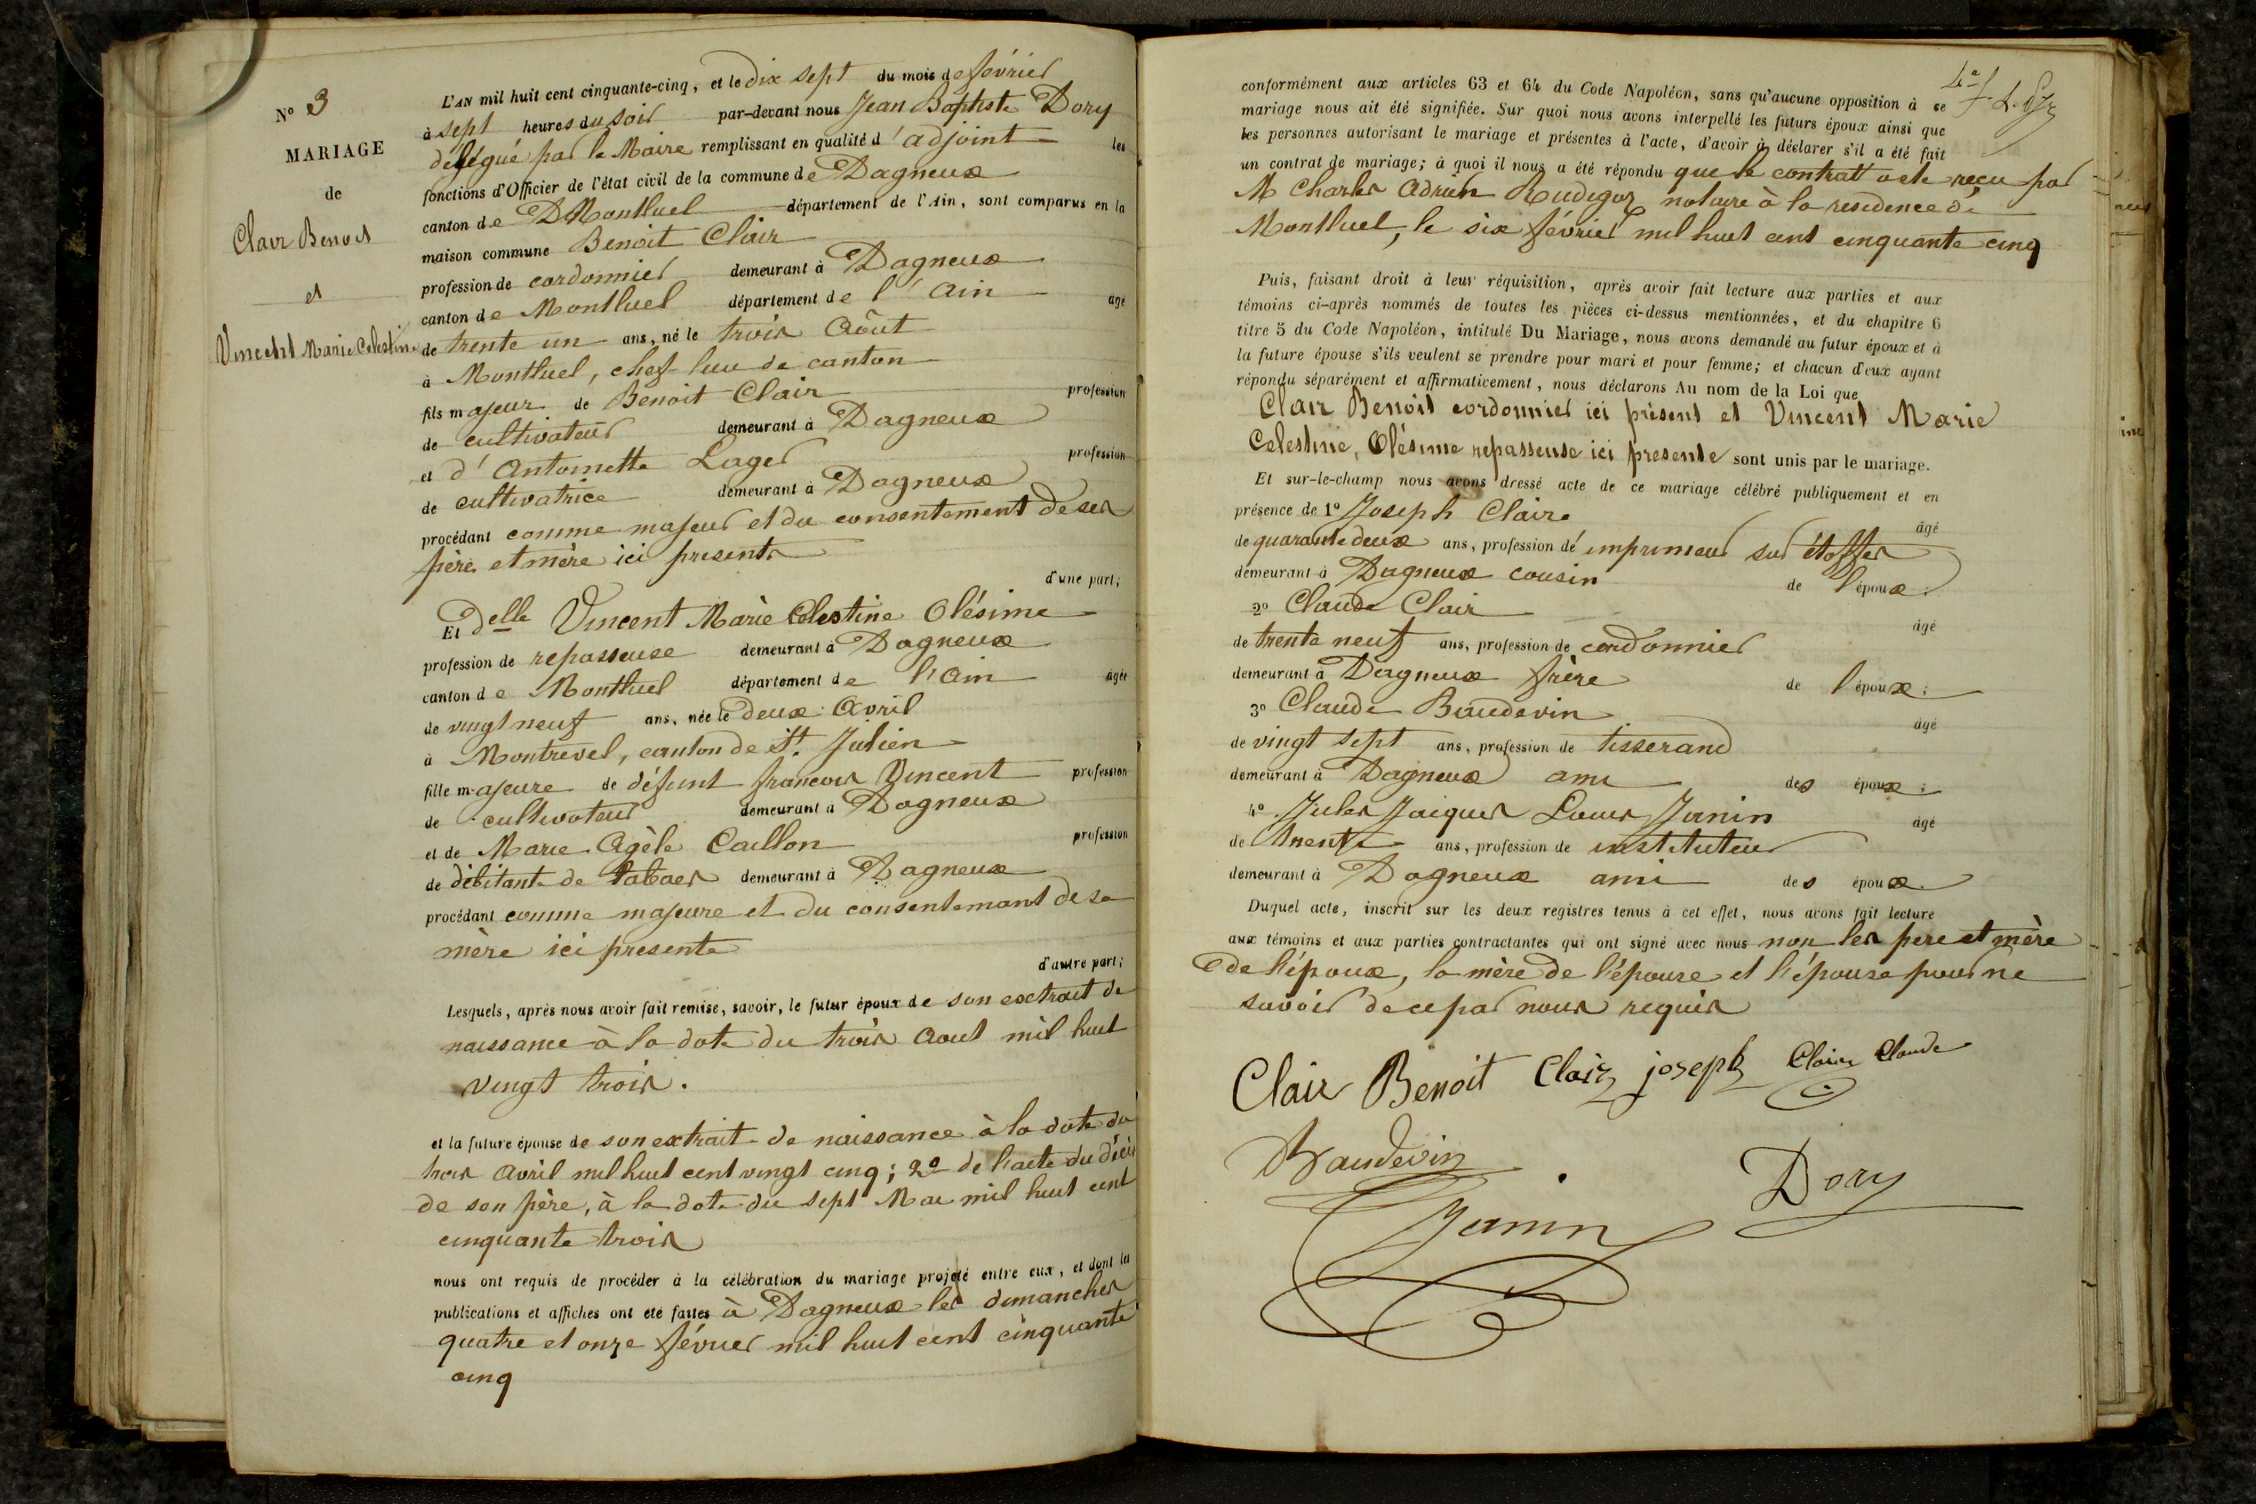 N° 3
MARIAGE
de
Clair Benoit
et
Vincent Marie Celestine
L'AN mil huit cent cinquante-cinq, et le dix sept du mois de février
à sept heures du soir par-devant nous Jean Baptiste Dory
délégué par le Maire remplissant en qualité d'adjoint les
fonctions d'Officier de l'état civil de la commune de Dagneux
canton de Montluel département de l'Ain, sont comparus en la
maison commune Benoit Clair
profession de cordonnier demeurant à Dagneux
canton de Montluel département de l'Ain âgé
de trente un ans, né le trois Août
à Montluel, chef lieu de canton
fils majeur de Benoit Clair profession
de cultivateur demeurant à Dagneux
et d'Antoinette Lager profession
de cultivatrice demeurant à Dagneux
procédant comme majeur et du consentement de ses
père et mère ici presents
d'une part;
Et Delle Vincent Marie Celestine Olésime
profession de repasseuse demeurant à Dagneux
canton de Montluel département de l'Ain âgée
de vingt neuf ans, née le deux Avril
à Montrevel, canton de St. Julien
fille majeure de défunt francois Vincent profession
de cultivateur demeurant à Dagneux
et de Marie Agèle Caillon profession
de débitante de tabacs demeurant à Dagneux
procédant comme majeure et du consentemant de sa
mère ici presente
d'autre part;
Lesquels, après nous avoir fait remise, savoir, le futur époux de son extrait de
naissance à la date du trois Aout mil huit
vingt trois.
et la future épouse de son extrait de naissance à la date du
trois Avril mil huit cent vingt cinq; 2° de l'acte du décès
de son père, à la date du sept Mai mil huit cent
cinquante trois
nous ont requis de procéder à la célébration du mariage projeté entre eux, et dont les
publications et affiches ont été faites à Dagneux les dimanches
quatre et onze février mil huit cent cinquante
cinq
conformément aux articles 63 et 64 du Code Napoléon, sans qu'aucune opposition à ce
mariage nous ait été signifiée. Sur quoi nous avons interpellé les futurs époux ainsi que
les personnes autorisant le mariage et présentes à l'acte, d'avoir à déclarer s'il a été fait
un contrat de mariage; à quoi il nous a été répondu que le contrat a été reçu par
M Charles Adrien Rudigoz notaire à la residence de
Montluel, le six février mil huit cent cinquante cinq
Puis, faisant droit à leur réquisition, après avoir fait lecture aux parties et aux
témoins ci-après nommés de toutes les pièces ci-dessus mentionnées, et du chapitre 6
titre 5 du Code Napoléon, intitulé Du Mariage, nous avons demandé au futur époux et à
la future épouse s'ils veulent se prendre pour mari et pour femme; et chacun d'eux ayant
répondu séparément et affirmativement, nous déclarons Au nom de la Loi que
Clair Benoit cordonnier ici présent et Vincent Marie
Celestine, Olésime repasseuse ici presente sont unis par le mariage.
Et sur-le-champ nous avons dressé acte de ce mariage célébré publiquement et en
présence de 1° Joseph Claire
âgé
de quarante deux ans, profession de imprimeur sur étoffes
demeurant à Dagneux cousin de l'époux;
2° Claude Clair
âgé
de trente neuf ans, profession de cordonnier
demeurant à Dagneux frère de l'époux;
3° Claude Baudevin
âgé
de vingt sept ans, profession de tisserand
demeurant à Dagneux ami des époux;
4° Jules Jacques Louis Janin
âgé
de trente ans, profession de instituteur
demeurant à Dagneux ami des époux.
Duquel acte, inscrit sur les deux registres tenus à cet effet, nous avons fait lecture
aux témoins et aux parties contractantes qui ont signé avec nous non les pere et mère
de l'époux, la mère de l'épouse et l'épouse pour ne
savoir de ce par nous requis
Clair Benoit Clair joseph Claire Claude
Baudevin
Dory
Janin